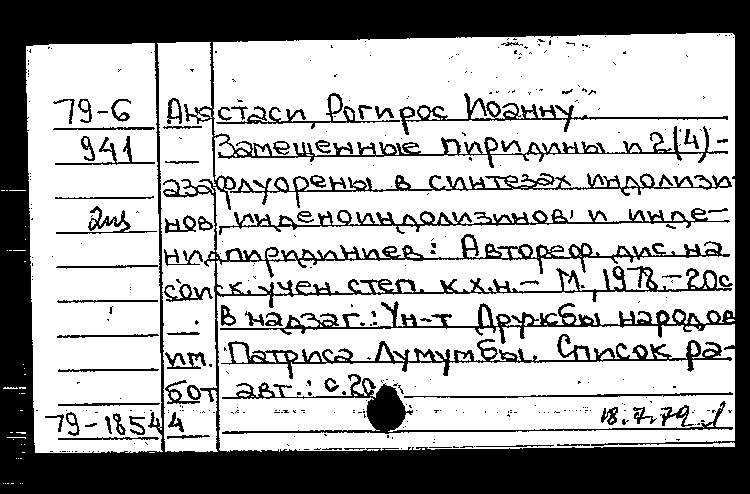 79-6 Анастаси, Рогирос Иоанну.
941 Замещенные пиридины и 2(4)-
азафлуорены в синтезах индолизи-
2из нов, инденоиндолизинов и инде-
нилпиридиниев: Автореф. дис. на
соиск. учен. степ. к.х.н. - М., 1978. - 20с
В надзаг.: Ун-т Дружбы народов
им. Патриса Лумумбы. Список ра-
бот авт.: с.20
79-18544 18.7.79